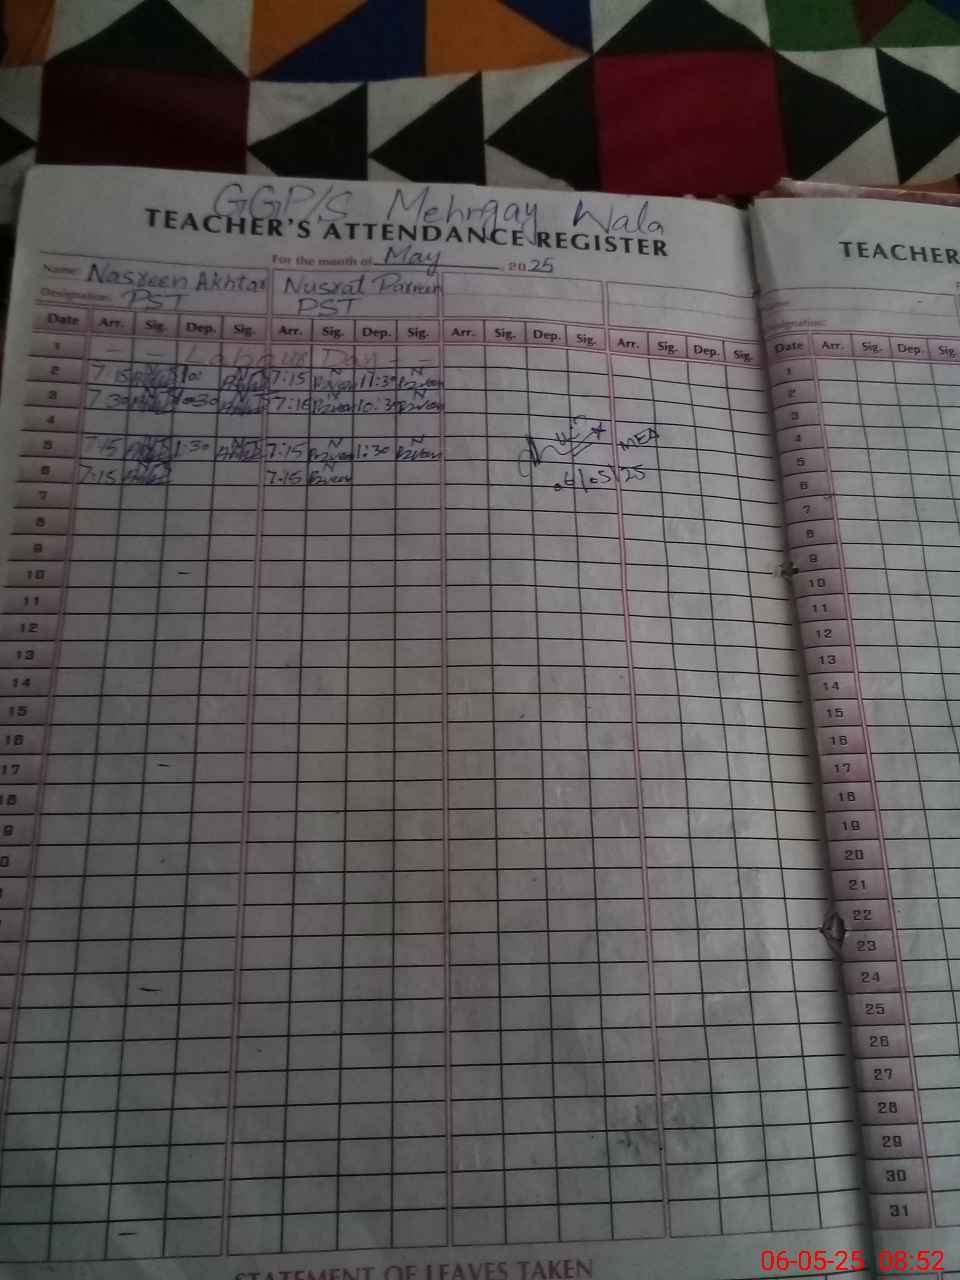 GGP/S Mehrgay Wala
TEACHER'S ATTENDANCE REGISTER
For the month of May, 2025
Name: Nasreen Akhtar Nusrat Parveen
Designation: PST PST
Date Arr. Sig. Dep. Sig. Arr. Sig. Dep. Sig. Arr. Sig. Dep. Sig. Arr. Sig. Dep. Sig.
1 - - Labour Day - -
2 7:15 7:15 11:30
3 7:30 10:30 7:16 10:30
4
5 7:15 1:30 7:15 1:30 MEA
6 7:15 7:15 06/05/25
7
8
9
10
11
12
13
14
15
16
17
18
9
0
STATEMENT OF LEAVES TAKEN
TEACHER
Name
Designation:
Date Arr. Sig. Dep. Sig
1
2
3
4
5
6
7
8
9
10
11
12
13
14
15
16
17
18
19
20
21
22
23
24
25
26
27
28
29
30
31
06-05-25 08:52